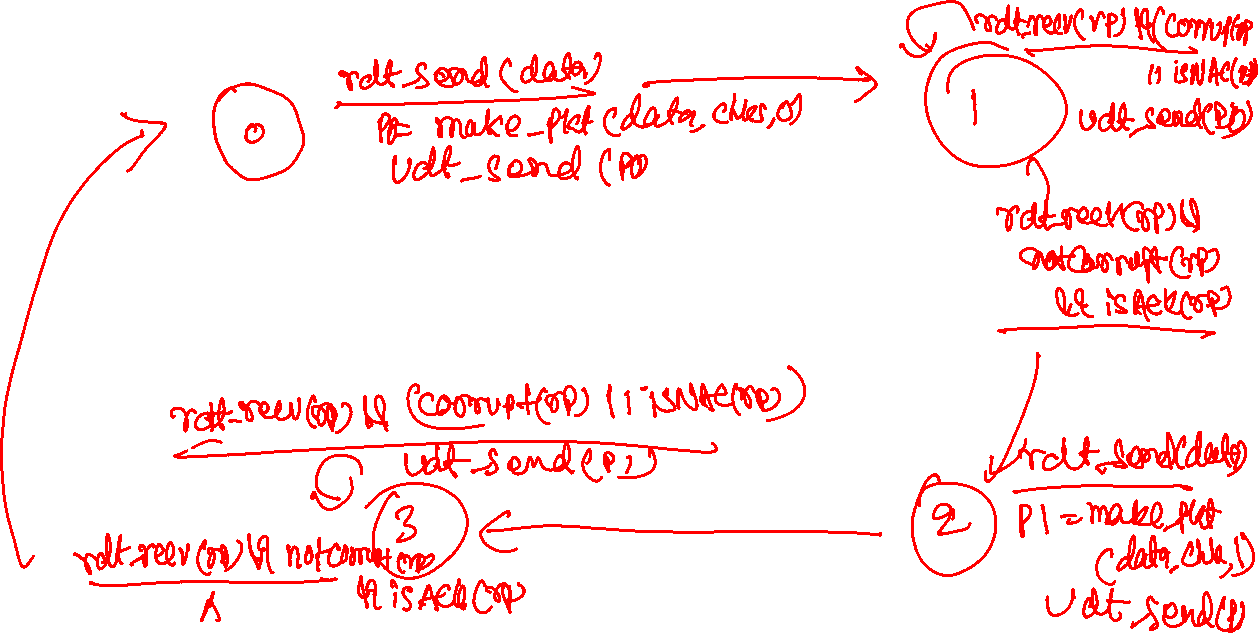 0
rdt_send(data)
P0= make_pkt (data, chks, 0)
Udt_send (P0
1
rdt_rcev(rp) && (corrupt(rp
|| isNAC(rp)
Udt_send(P0)
rdt_rcev(rp) &&
notcorrupt(rp)
&& isAck(rp)
2
rdt_send(data)
P1 = make_pkt
(data, chk, 1)
Udt_send(P)
rdt_rcev(rp) && (corrupt(rp) || isNAC(rp))
Udt_send(P1)
3
rdt_rcev(rp) && notcorrupt(rp)
&& isAck(rp)
Λ